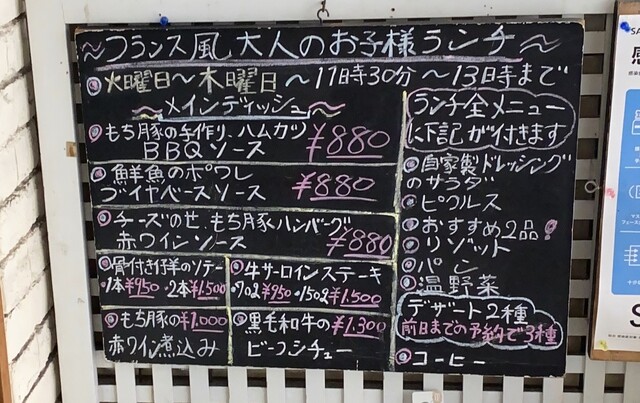 ～フランス風 大人のお子様ランチ～
火曜日～木曜日～11時30分～13時まで
～メインディッシュ～
もち豚の手作り、ハムカツ
BBQソース ¥880
鮮魚のポワレ
ブイヤベースソース ¥880
チーズのせ、もち豚ハンバーグ
赤ワインソース ¥880
骨付き仔羊のソテー
1本¥950・2本¥1,500
牛サーロインステーキ
・7oz¥950・15oz¥1,500
もち豚の¥1,000
赤ワイン煮込み
黒毛和牛の¥1,300
ビーフシチュー
ランチ全メニュー
に下記が付きます
自家製ドレッシング
のサラダ
ピクルス
おすすめ2品!
リゾット
パン
温野菜
デザート2種
前日までの予約で3種
コーヒー